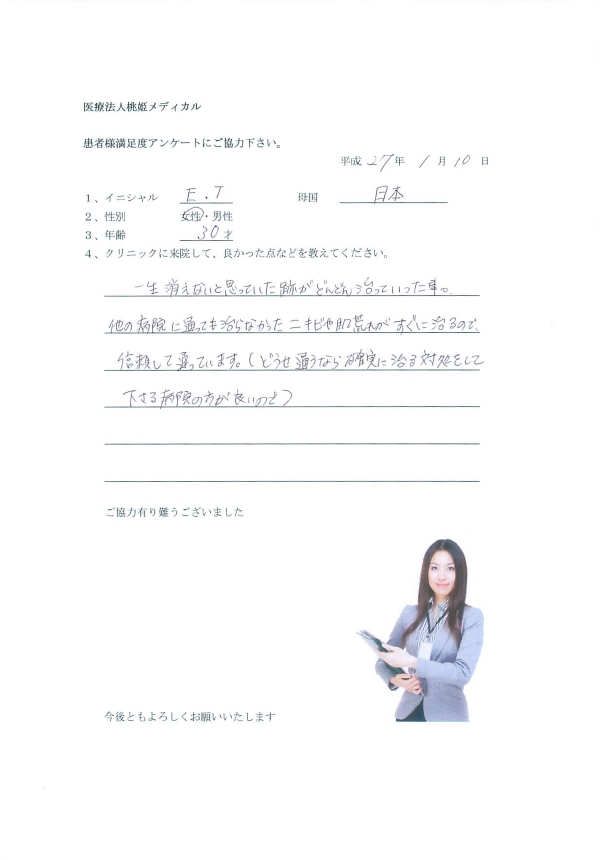 医療法人桃姫メディカル
患者様満足度アンケートにご協力下さい。
平成 27年 1月 10日
1、イニシャル E.T 母国 日本
2、性別 女性・男性
3、年齢 30才
4、クリニックに来院して、良かった点などを教えてください。
一生消えないと思っていた跡がどんどん治っていった事。
他の病院に通っても治らなかったニキビや肌荒れがすぐに治るので、
信頼して通っています。(どうせ通うなら確実に治る対処をして
下さる病院の方が良いので)
ご協力有り難うございました
今後ともよろしくお願いいたします